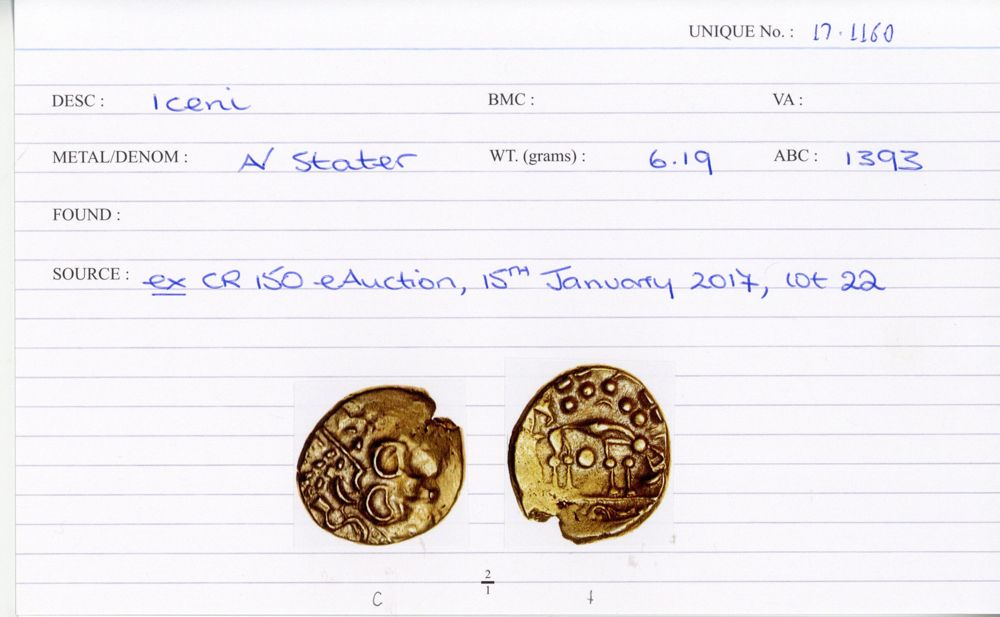 UNIQUE No. : 17.1160
DESC : Iceni BMC : VA :
METAL/DENOM : A/ Stater WT. (grams) : 6.19 ABC : 1393
FOUND :
SOURCE : ex CR 150 eAuction, 15TH January 2017, lot 22
2
1
C